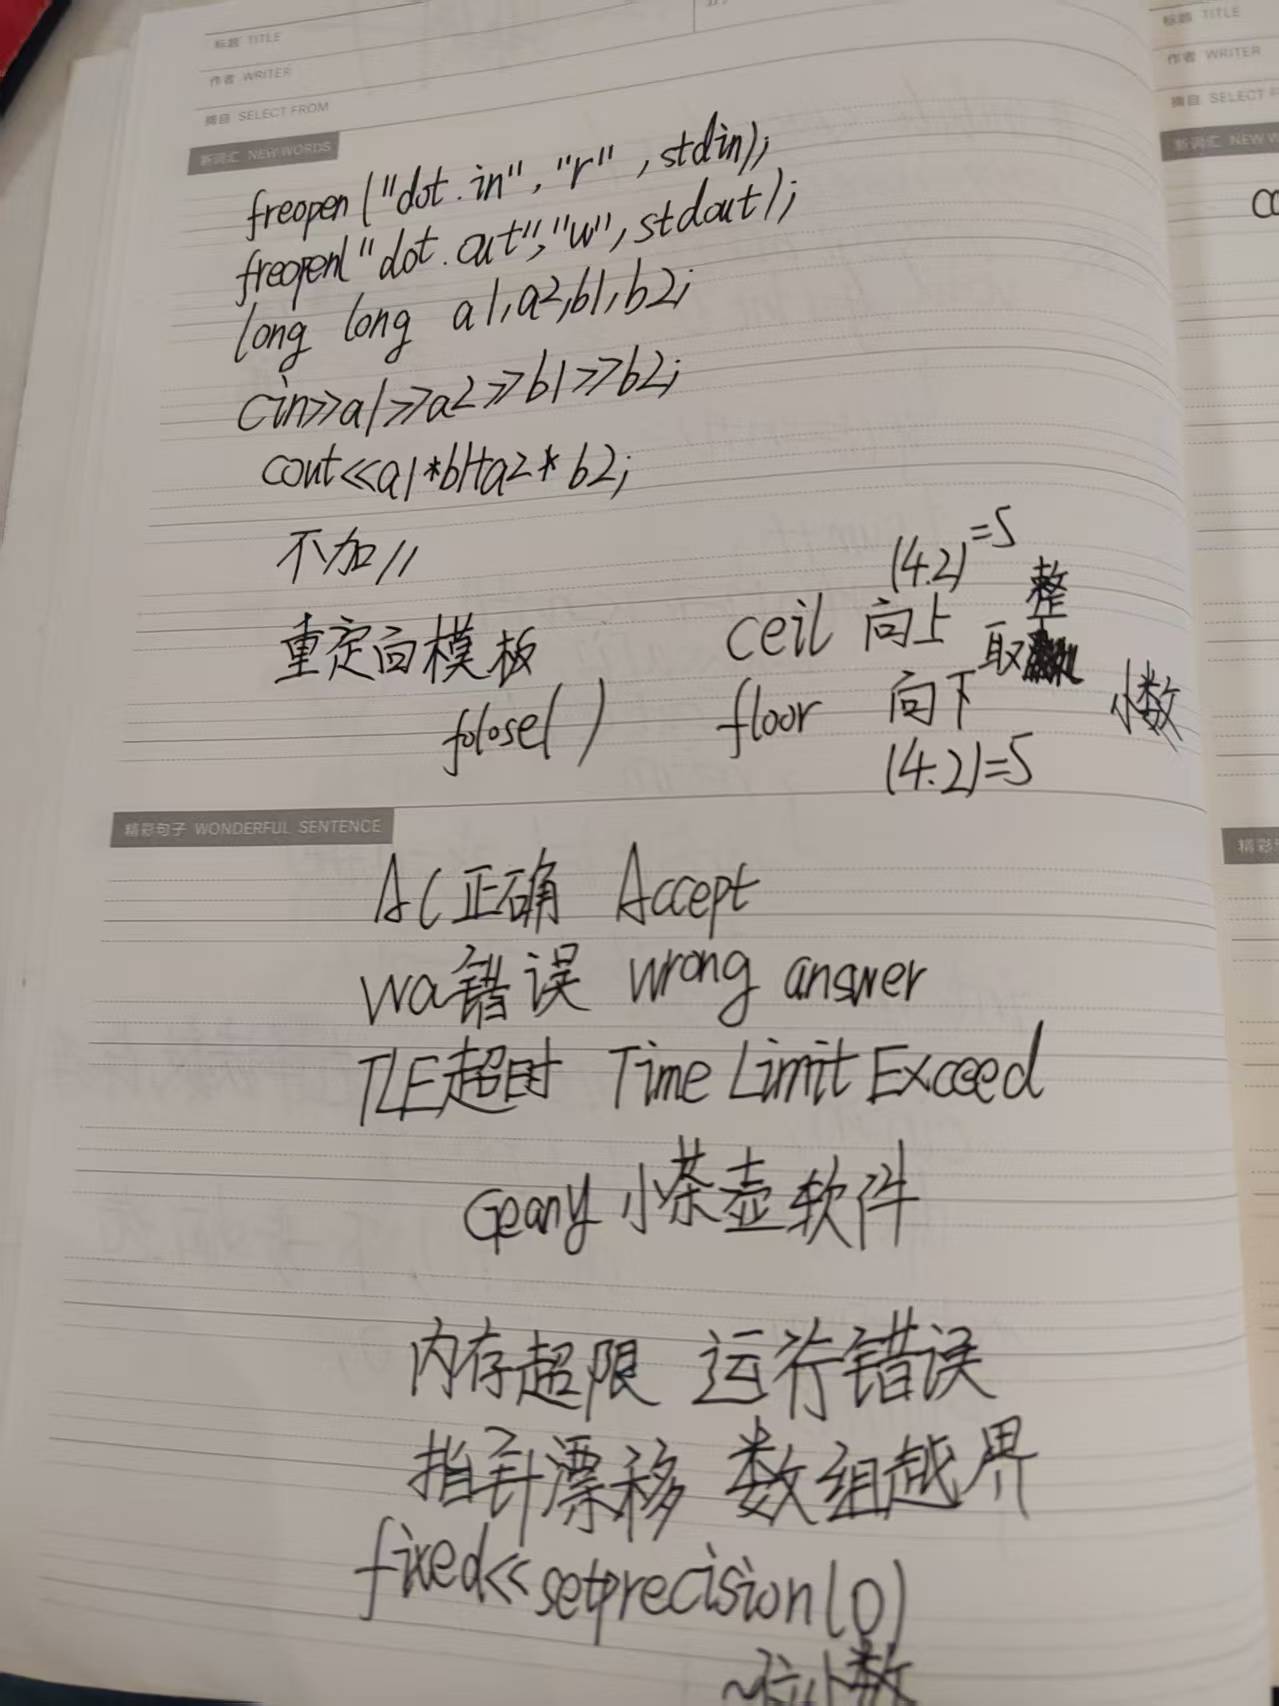 标题 TITLE
作者 WRITER
摘自 SELECT FROM
新词汇 NEW WORDS
freopen("dot.in","r",stdin);
freopen("dot.out","w",stdout);
long long a1,a2,b1,b2;
cin>>a1>>a2>>b1>>b2;
cout<<a1*b1+a2*b2;
不加//
重定向模板
fclose()
(4.2)=5
ceil 向上 取整
floor 向下 小数
(4.2)=5
精彩句子 WONDERFUL SENTENCE
AC正确 Accept
wa错误 wrong answer
TLE超时 Time Limit Exceed
Geany 小茶壶软件
内存超限 运行错误
指针漂移 数组越界
fixed<<setprecision(0)
~位小数
标题 TITLE
作者 WRITER
摘自 SELECT
新词汇 NEW
精彩